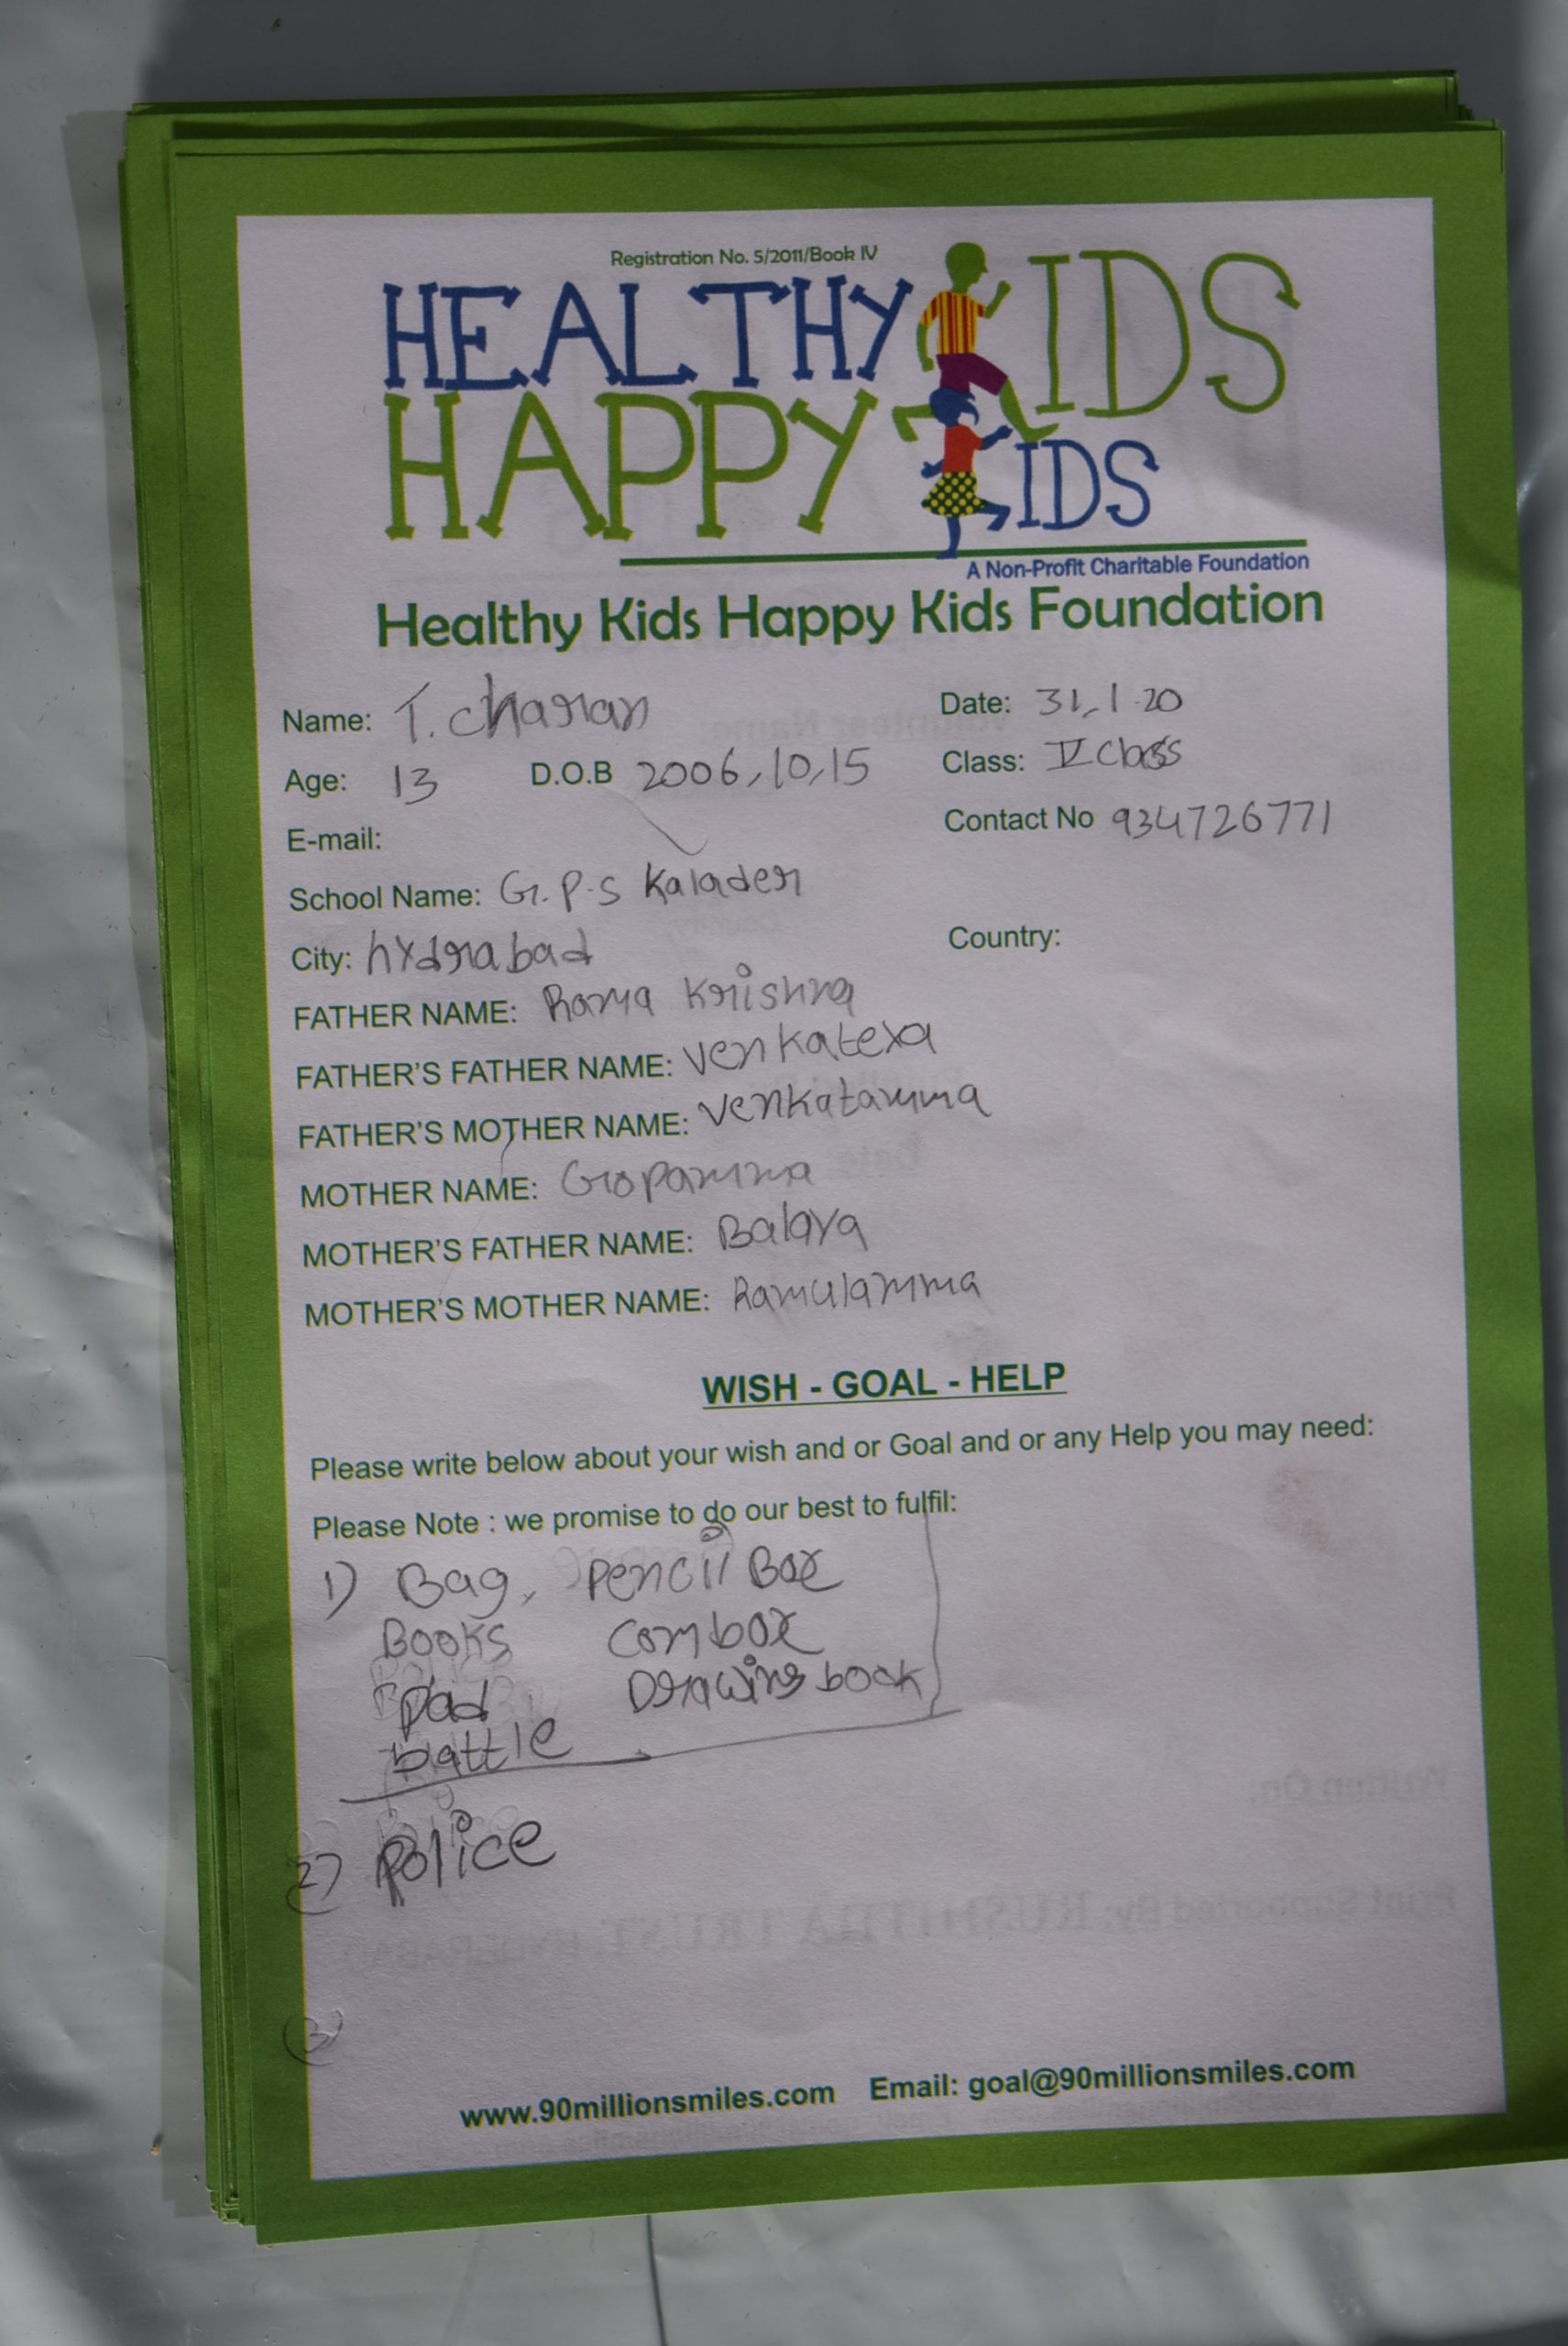 Registration No. 5/2011/Book IV
HEALTHY KIDS
HAPPY KIDS
A Non-Profit Charitable Foundation
Healthy Kids Happy Kids Foundation
Name: T. charan Date: 31.1.20
Age: 13 D.O.B 2006,10,15 Class: V Class
E-mail: Contact No 934726771
School Name: G.P.S Kalader
City: hydrabad Country:
FATHER NAME: Rama Krishna
FATHER'S FATHER NAME: Venkatexa
FATHER'S MOTHER NAME: Venkatamma
MOTHER NAME: Gopamma
MOTHER'S FATHER NAME: Balaya
MOTHER'S MOTHER NAME: Ramulamma
WISH - GOAL - HELP
Please write below about your wish and or Goal and or any Help you may need:
Please Note : we promise to do our best to fulfil:
1) Bag, Pencil Box
Books Combox
Pad Drawing book
battle
2) Police
3)
www.90millionsmiles.com Email: goal@90millionsmiles.com